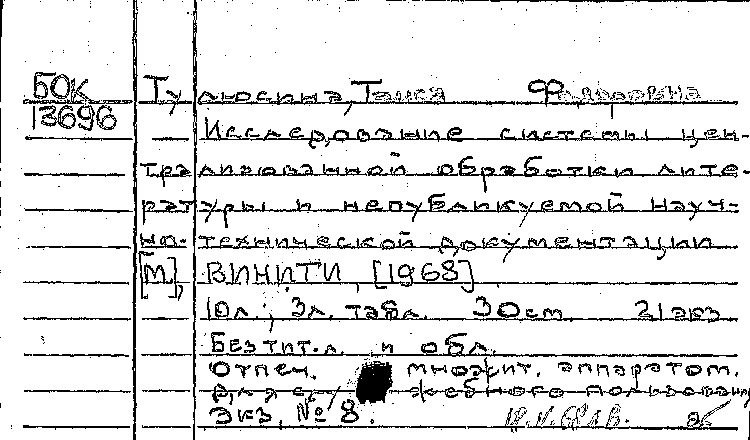 БОК
13696
Тулюсина, Таися
Исследование системы цен-
трализованной обработки лите-
ратуры и непубликуемой науч-
но-технической документации
[М], ВИНИТИ, [1968]
10л., 3л. табл. 30см. 21 экз
Без тит. л. и обл.
Отпеч. множит. аппаратом.
Для служебного пользования
Экз. № 8.